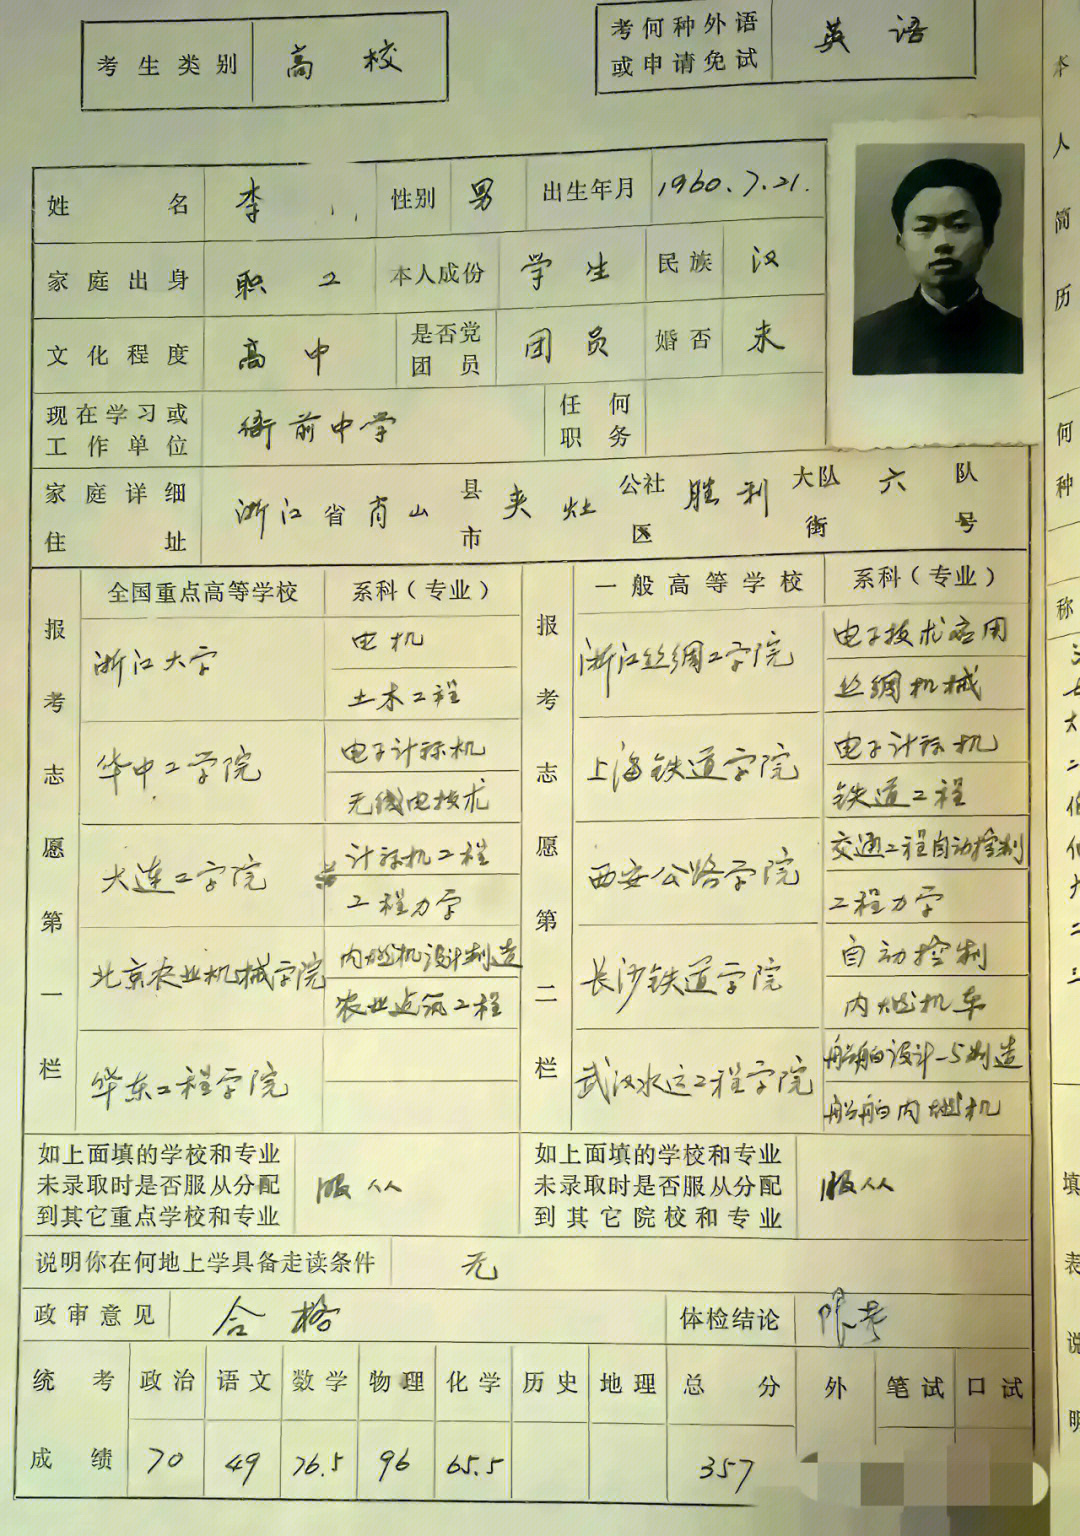 考生类别 高校
考何种外语或申请免试 英语
姓名 李 性别 男 出生年月 1960.7.21.
家庭出身 职工 本人成份 学生 民族 汉
文化程度 高中 是否党团员 团员 婚否 未
现在学习或工作单位 衙前中学 任何职务
家庭详细住址 浙江省肖山县市 夹灶公社区 胜利大队街 六队号
报考志愿第一栏 报考志愿第二栏
全国重点高等学校 系科(专业) 一般高等学校 系科(专业)
浙江大学 电机 浙江丝绸工学院 电子技术应用
土木工程 丝绸机械
华中工学院 电子计算机 上海铁道学院 电子计算机
无线电技术 铁道工程
大连工学院 计算机工程 西安公路学院 交通工程自动控制
工程力学 工程力学
北京农业机械学院 内燃机设计制造 长沙铁道学院 自动控制
农业建筑工程 内燃机车
华东工程学院 武汉水运工程学院 船舶设计与制造
船舶内燃机
如上面填的学校和专业 如上面填的学校和专业
未录取时是否服从分配 服从 未录取时是否服从分配 服从
到其它重点学校和专业 到其它院校和专业
说明你在何地上学具备走读条件 无
政审意见 合格 体检结论 限考
统考 政治 语文 数学 物理 化学 历史 地理 总分 外 笔试 口试
成绩 70 49 76.5 96 65.5 357
本人简历
何种
称
填表说明